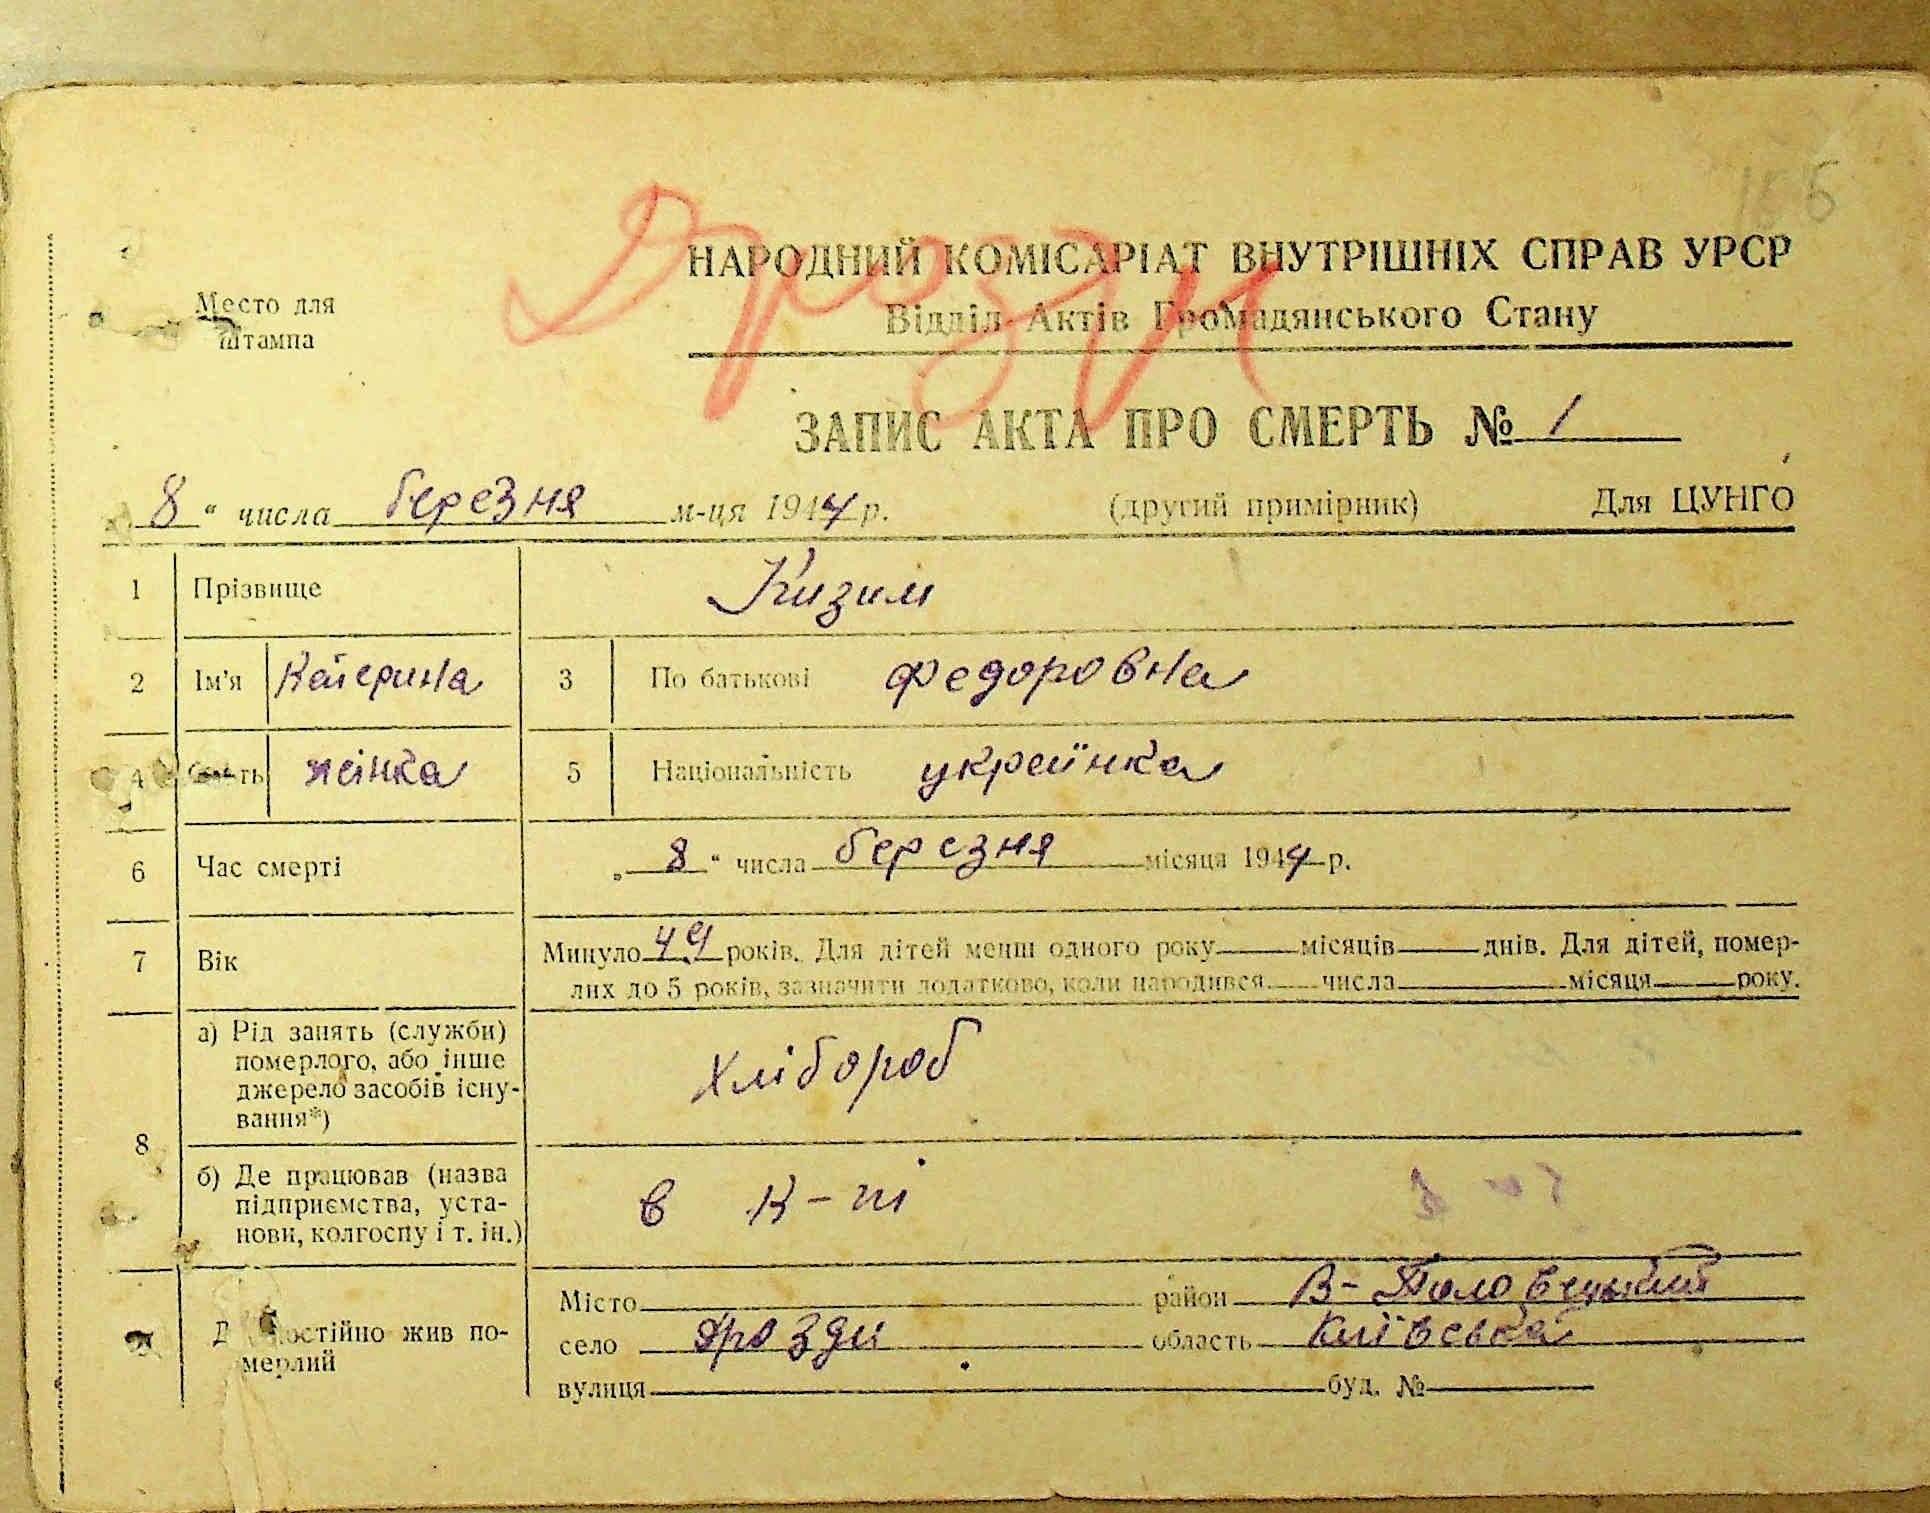 Дрозди
НАРОДНИЙ КОМІСАРІАТ ВНУТРІШНІХ СПРАВ УРСР
Место для
штампа
Відділ Актів Громадянського Стану
ЗАПИС АКТА ПРО СМЕРТЬ № 1
8 " числа березня м-ця 1944 р. (другий примірник) Для ЦУНГО
1 Прізвище Кизим
2 Ім'я Катерина 3 По батькові Федоровна
4 жінка 5 Національність українка
6 Час смерті „ 8 " числа березня місяця 1944 р.
7 Вік Минуло 49 років. Для дітей менш одного року місяців днів. Для дітей, помер-
лих до 5 років, зазначити додатково, коли народився числа місяця року.
8 а) Рід занять (служби)
померлого, або інше
джерело засобів існу-
вання*)
Хлібороб
б) Де працював (назва
підприємства, уста-
нови, колгоспу і т. ін.)
в к-ті
постійно жив по-
мерлий
Місто район В-Половецький
село Дрозди область Київська
вулиця буд. №